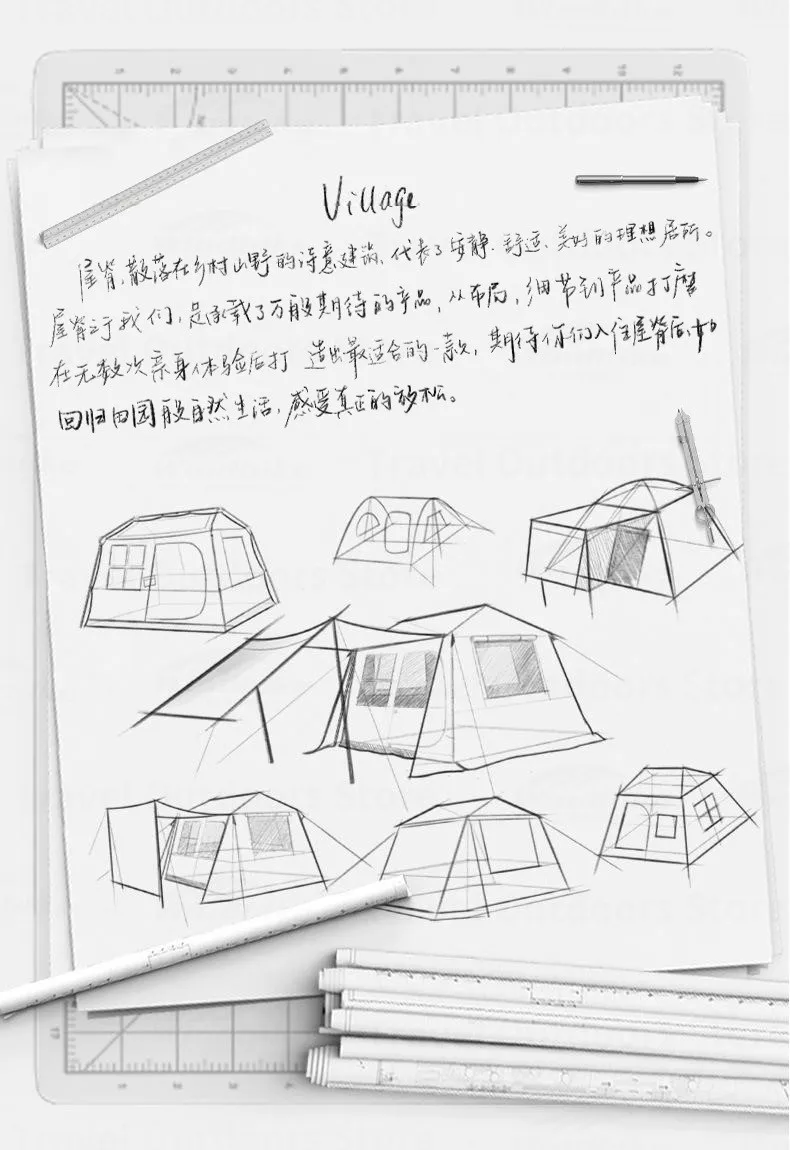 Village
屋脊，散落在乡村山野的诗意建筑、代表了安静、舒适、美好的理想居所。
屋脊之于我们，是承载了万般期待的产品，从布局，细节到产品打磨
在无数次亲身体验后打造出最适合的一款，期待你们入住屋脊后，如
回归田园般自然生活，感受真正的放松。
Travel Outdoors Store